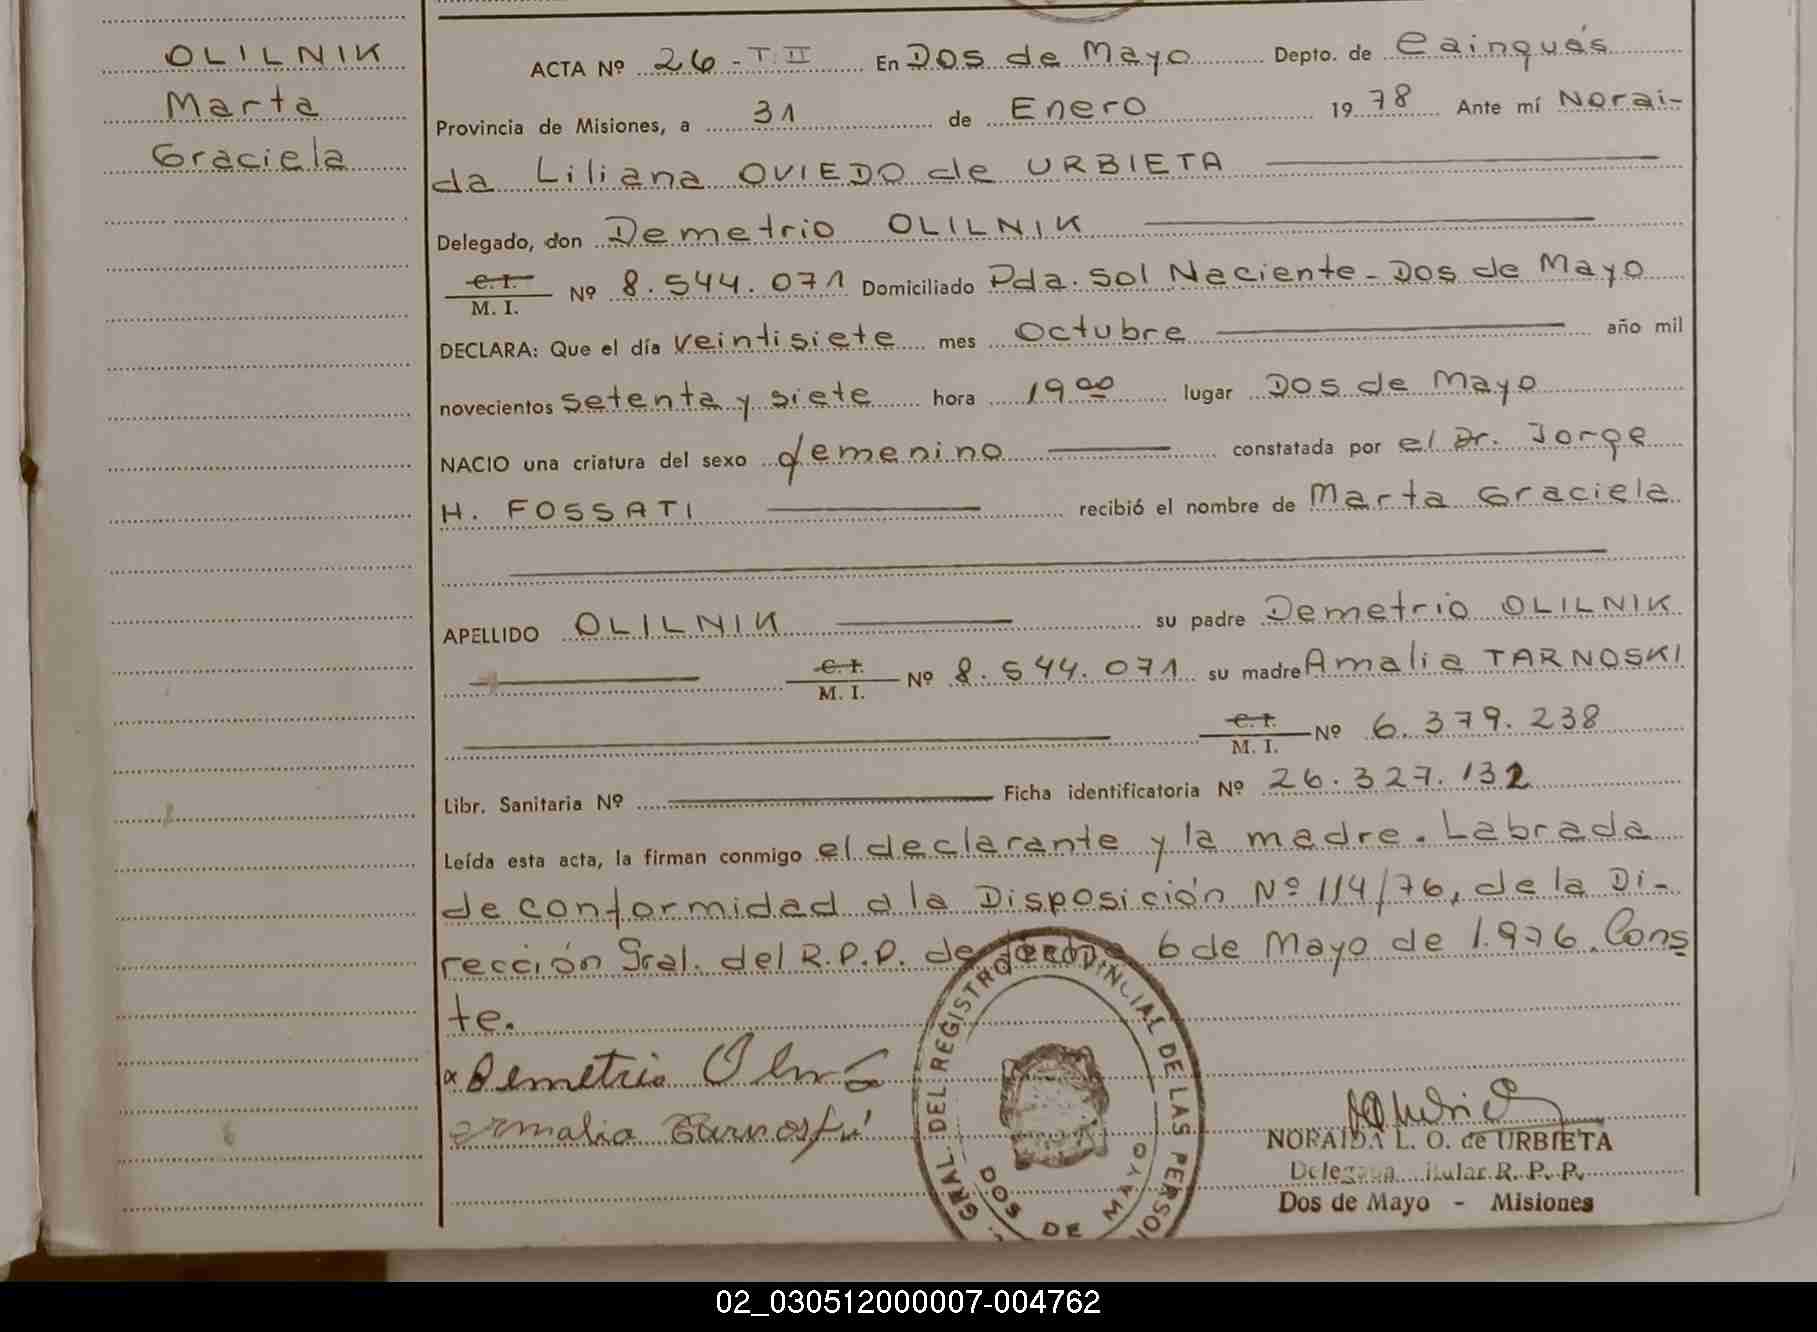 OLILNIK
Marta
Graciela
ACTA Nº 26-T.II En Dos de Mayo Depto. de Cainguás
Provincia de Misiones, a 31 de Enero 1978 Ante mí Norai-
da Liliana OVIEDO de URBIETA
Delegado, don Demetrio OLILNIK
C.I.
M. I. Nº 8.544.071 Domiciliado Pda. Sol Naciente - Dos de Mayo
DECLARA: Que el día veintisiete mes octubre año mil
novecientos setenta y siete hora 19 00 lugar Dos de Mayo
NACIO una criatura del sexo femenino constatada por el Dr. Jorge
H. FOSSATI recibió el nombre de Marta Graciela
APELLIDO OLILNIK su padre Demetrio OLILNIK
C.I.
M. I. Nº 8.544.071 su madre Amalia TARNOSKI
C.I.
M. I. Nº 6.379.238
Libr. Sanitaria Nº Ficha identificatoria Nº 26.327.132
Leída esta acta, la firman conmigo el declarante y la madre. Labrada
de conformidad a la Disposición Nº 114/76, de la Di-
rección Gral. del R.P.P. de fecha 6 de Mayo de 1.976. Cons
te.
Demetrio
Amalia Tarnoski
GRAL. DEL REGISTRO PROVINCIAL DE LAS PERSO
DOS DE MAYO
NORAIDA L. O. de URBIETA
Delegada Titular R. P. P.
Dos de Mayo - Misiones
02_030512000007-004762